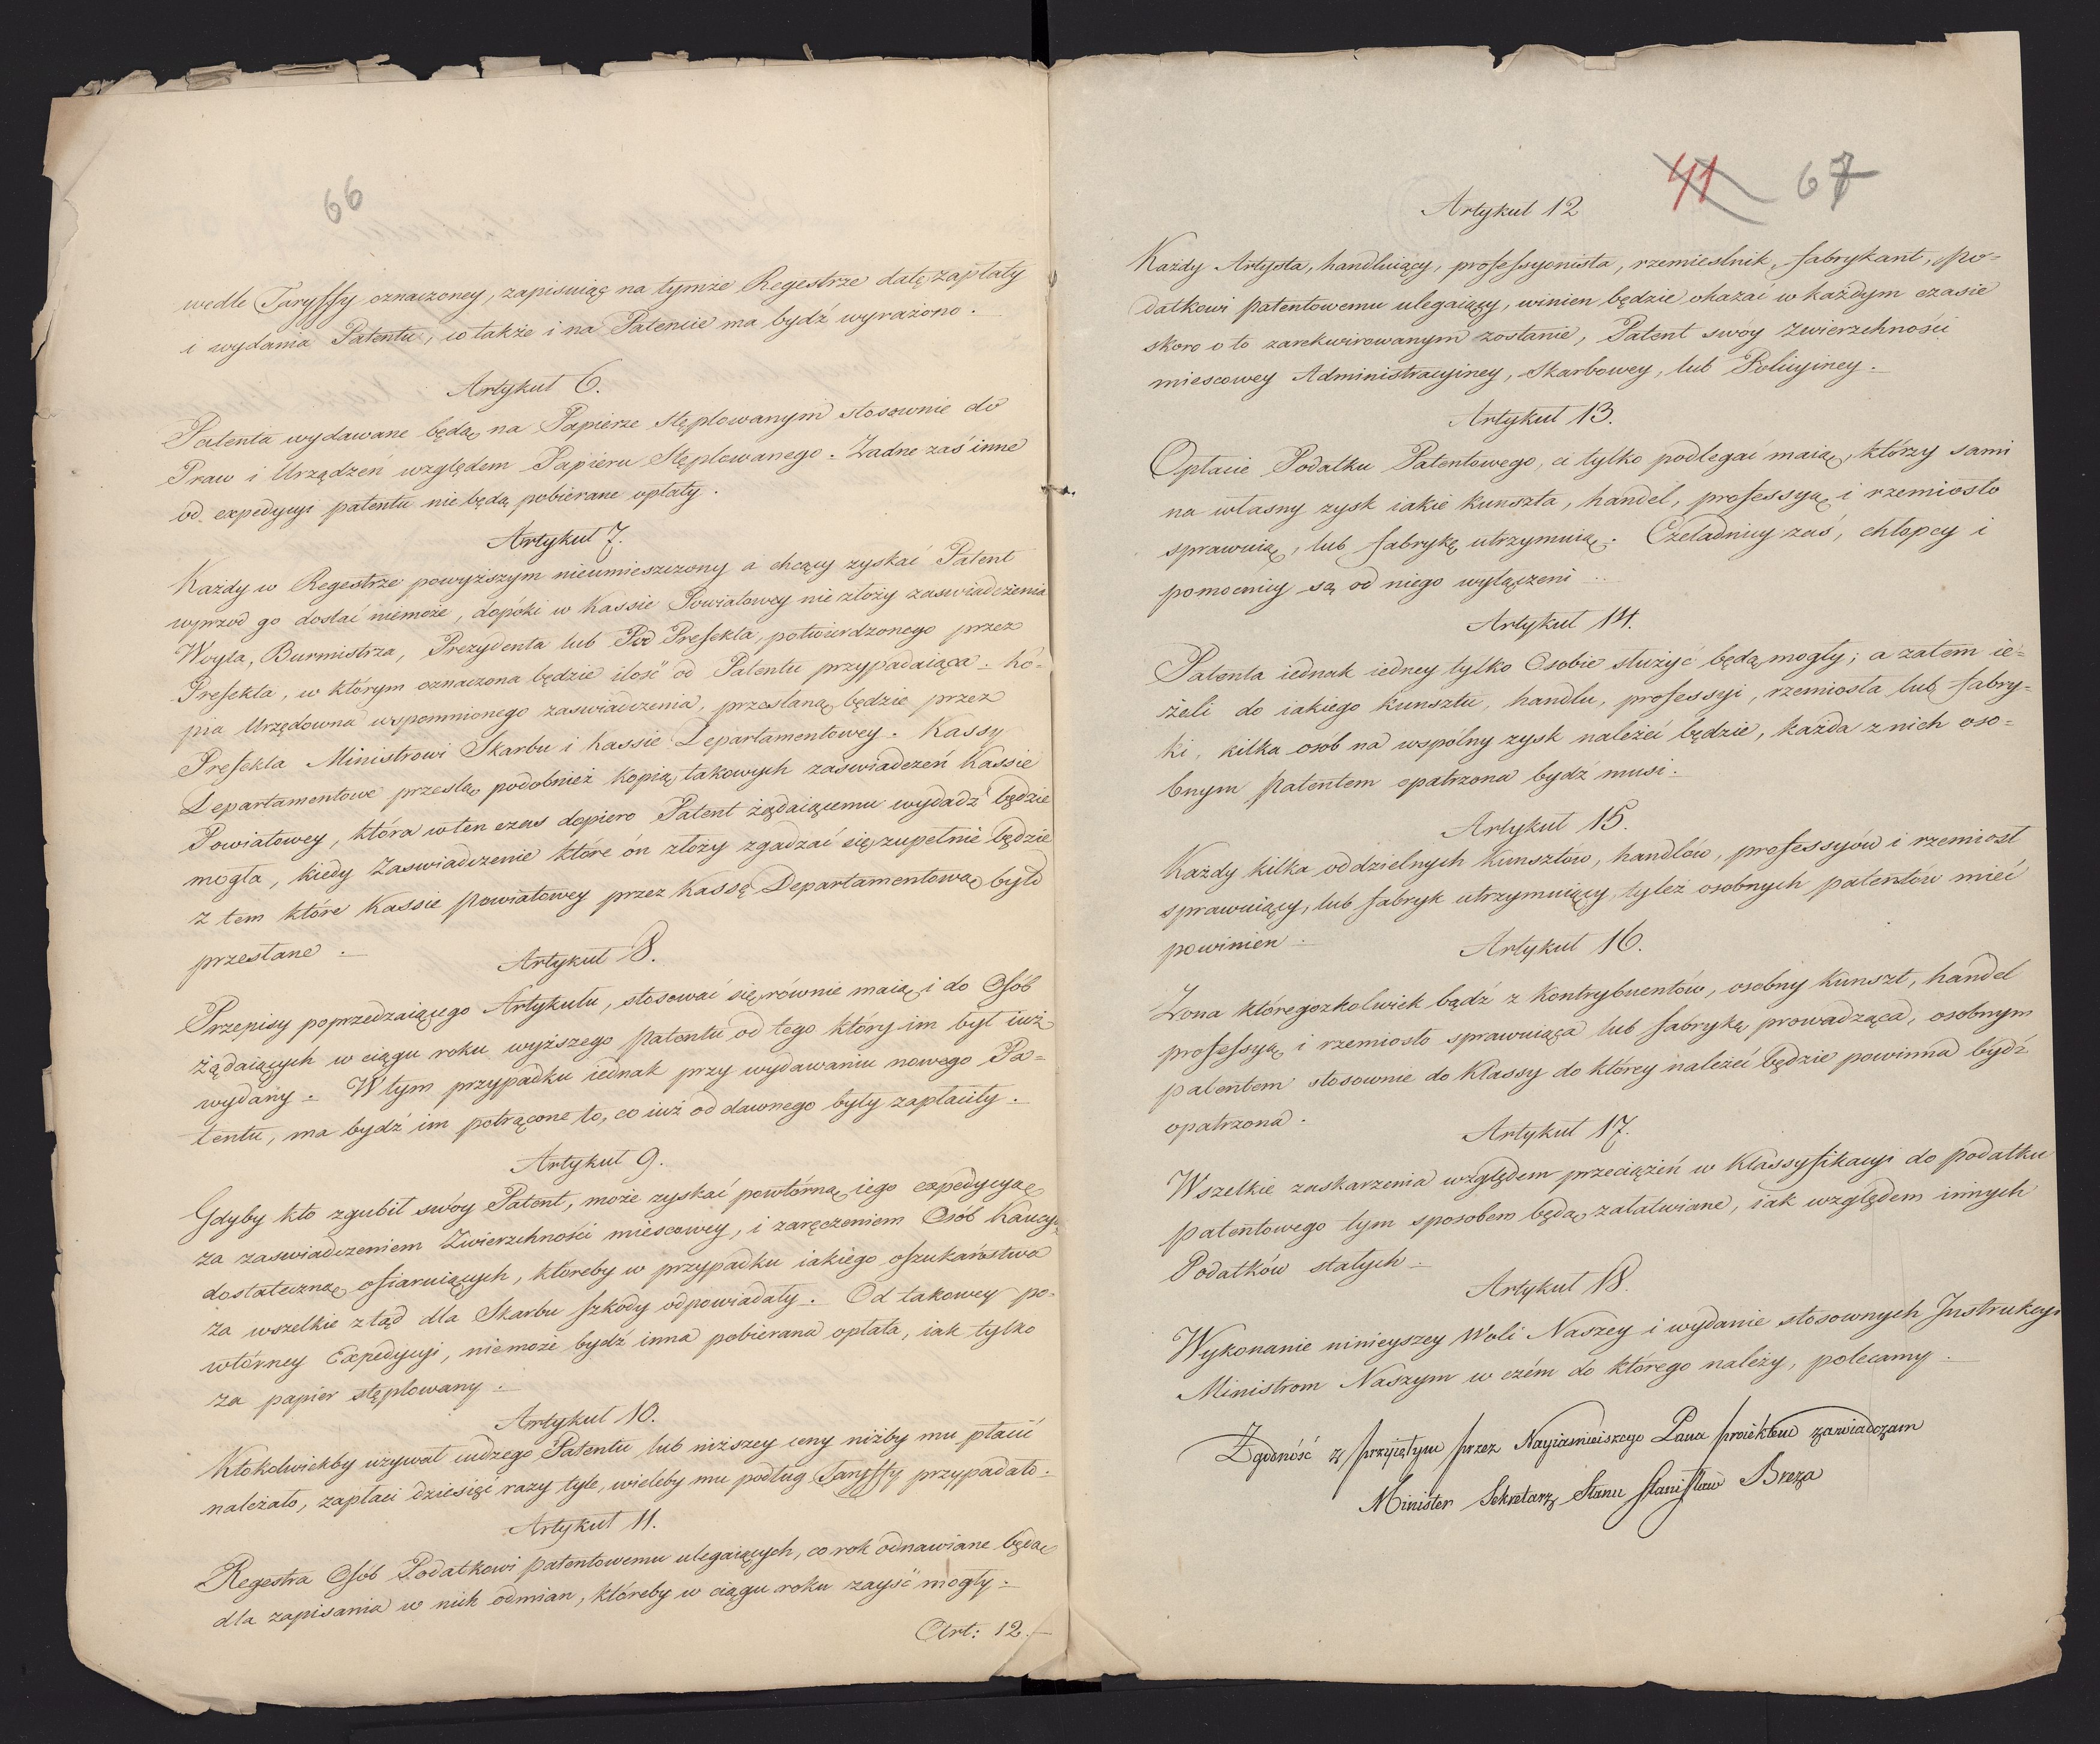 66
wedle Taryffy oznaczoney, zapisuiąc na tymże Regestrze datę zapłaty
i wydania Patentu, co także i na Patencie ma bydź wyrażono.
Artykuł 6.
Patenta wydawane będą na Papierze stęplowanym stosownie do
Praw i Urządzeń względem Papieru Stęplowanego. Żadne zaś inne
od expedycyi patentu nie będą pobierane opłaty.
Artykuł 7.
Każdy w Regestrze powyższym nieumieszczony a chcący zyskać Patent
wprzod go dostać niemoże, dopóki w Kassie Powiatowey nie złoży zaswiadczenia
Woyta, Burmistrza, Prezydenta lub Pod Prefekta, potwierdzonego przez
Prefekta, w którym oznaczona będzie ilość od Patentu przypadaiąca. Ko=
pia Urzędowna wspomnionego zaswiadczenia, przesłaną będzie przez
Prefekta Ministrowi Skarbu i Kassie Departamentowey. Kassy
Departamentowe prześlą podobnież kopią takowych zaswiadczeń Kassie
Powiatowey, która w ten czas dopiero Patent żądaiącemu wydadź będzie
mogła, kiedy Zaswiadczenie które ón złoży zgadzać się zupełnie będzie
z tem które Kassie powiatowey przez Kassę Departamentową było
przesłane.
Artykuł 8.
Przepisy poprzedzaiącego Artykułu, stosować się równie maią i do Osób
żądaiących w ciągu roku wyższego Patentu od tego który im był iuż
wydany. W tym przypadku iednak przy wydawaniu nowego Pa=
tentu, ma bydź im potrącone to, co iuż od dawnego były zapłaciły.
Artykuł 9.
Gdyby kto zgubił swóy Patent, może zyskać powtórną iego expedycyą
za zaswiadczeniem Zwierzchności miescowey, i zaręczeniem Osób Kaucyą
dostateczną ofiaruiących, któreby w przypadku iakiego oszukaństwa
za wszelkie ztąd dla Skarbu szkody odpowiadały. Od takowey po=
wtórney Expedycyi, niemoże bydź inna pobierana opłata, iak tylko
za papier stęplowany.
Artykuł 10.
Ktokolwiekby używał cudzego Patentu lub niższey ceny niżby mu płacić
należało, zapłaci dziesięć razy tyle, wieleby mu podług Taryffy przypadało.
Artykuł 11.
Regestra Osób Podatkowi patentowemu ulegaiących, co rok odnawiane będą
dla zapisania w nich odmian, któreby w ciągu roku zayść mogły.
Art: 12.
41 67
Artykuł 12
Każdy Artysta, handluiący, professyonista, rzemieslnik, fabrykant, po=
datkowi patentowemu ulegaiący, winien będzie okazać w każdym czasie
skoro o to zarekwirowanym zostanie, Patent swóy Zwierzchności
miescowey Administracyiney, Skarbowey, lub Policyiney.
Artykuł 13.
Opłacie Podatku Patentowego, ci tylko podlegać maią, którzy sami
na własny zysk iakie kunszta, handel, professyą i rzemiosło
sprawuią, lub fabrykę utrzymuią. Czeladnicy zaś, chłopcy i
pomocnicy są od niego wyłączeni
Artykuł 14.
Patenta iednak iedney tylko Osobie służyć będą mogły; a zatem ie=
żeli do iakiego kunsztu, handlu, professyi, rzemiosła lub fabry=
ki, kilka osób na wspólny zysk należeć będzie, każda z nich oso=
bnym Patentem opatrzona bydź musi.
Artykuł 15.
Każdy kilka oddzielnych kunsztów, handlów, professyów i rzemiosł
sprawuiący, lub fabryk utrzymuiący, tyleż osobnych patentów mieć
powinien.
Artykuł 16.
Żona któregożkolwiek bądź z Kontrybuentów, osobny kunszt, handel
professyą i rzemiosło sprawuiąca lub fabrykę prowadząca, osobnym
patentem stosownie do Klassy do którey należeć będzie powinna bydź
opatrzona.
Artykuł 17.
Wszelkie zaskarżenia względem przeciążeń w Klassyfikacyi do podatku
patentowego tym sposobem będą załatwiane, iak względem innych
Podatków stałych.
Artykuł 18.
Wykonanie ninieyszey Woli Naszey i wydanie stosownych Instrukcyi
Ministrom Naszym w czém do którego należy, polecamy.
Zgodność z przyiętym przez Nayiaśnieiszego Pana proiektem zaswiadczam
Minister Sekretarz Stanu Stanisław Breza